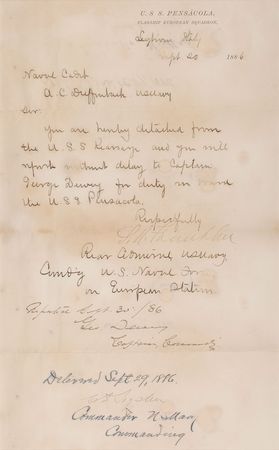 U. S. S. PENSACOLA,
FLAGSHIP EUROPEAN SQUADRON,
Leghorn Italy
Sept 20 1886
Naval Cadet
A. C. Dieffenbach US Navy
Sir:
You are hereby detached from
the U.S.S Kearsarge and you will
report without delay to Captain
George Dewey for duty on board
the U.S.S Pensacola.
Respectfully
Rear Admiral US Navy
Comd'g U.S. Naval Force
on European Station
Reported Sept. 30/86
Geo Dewey
Captain, Comma
Delivered Sept 29, 1886.
Commander U.S. Navy
Commanding